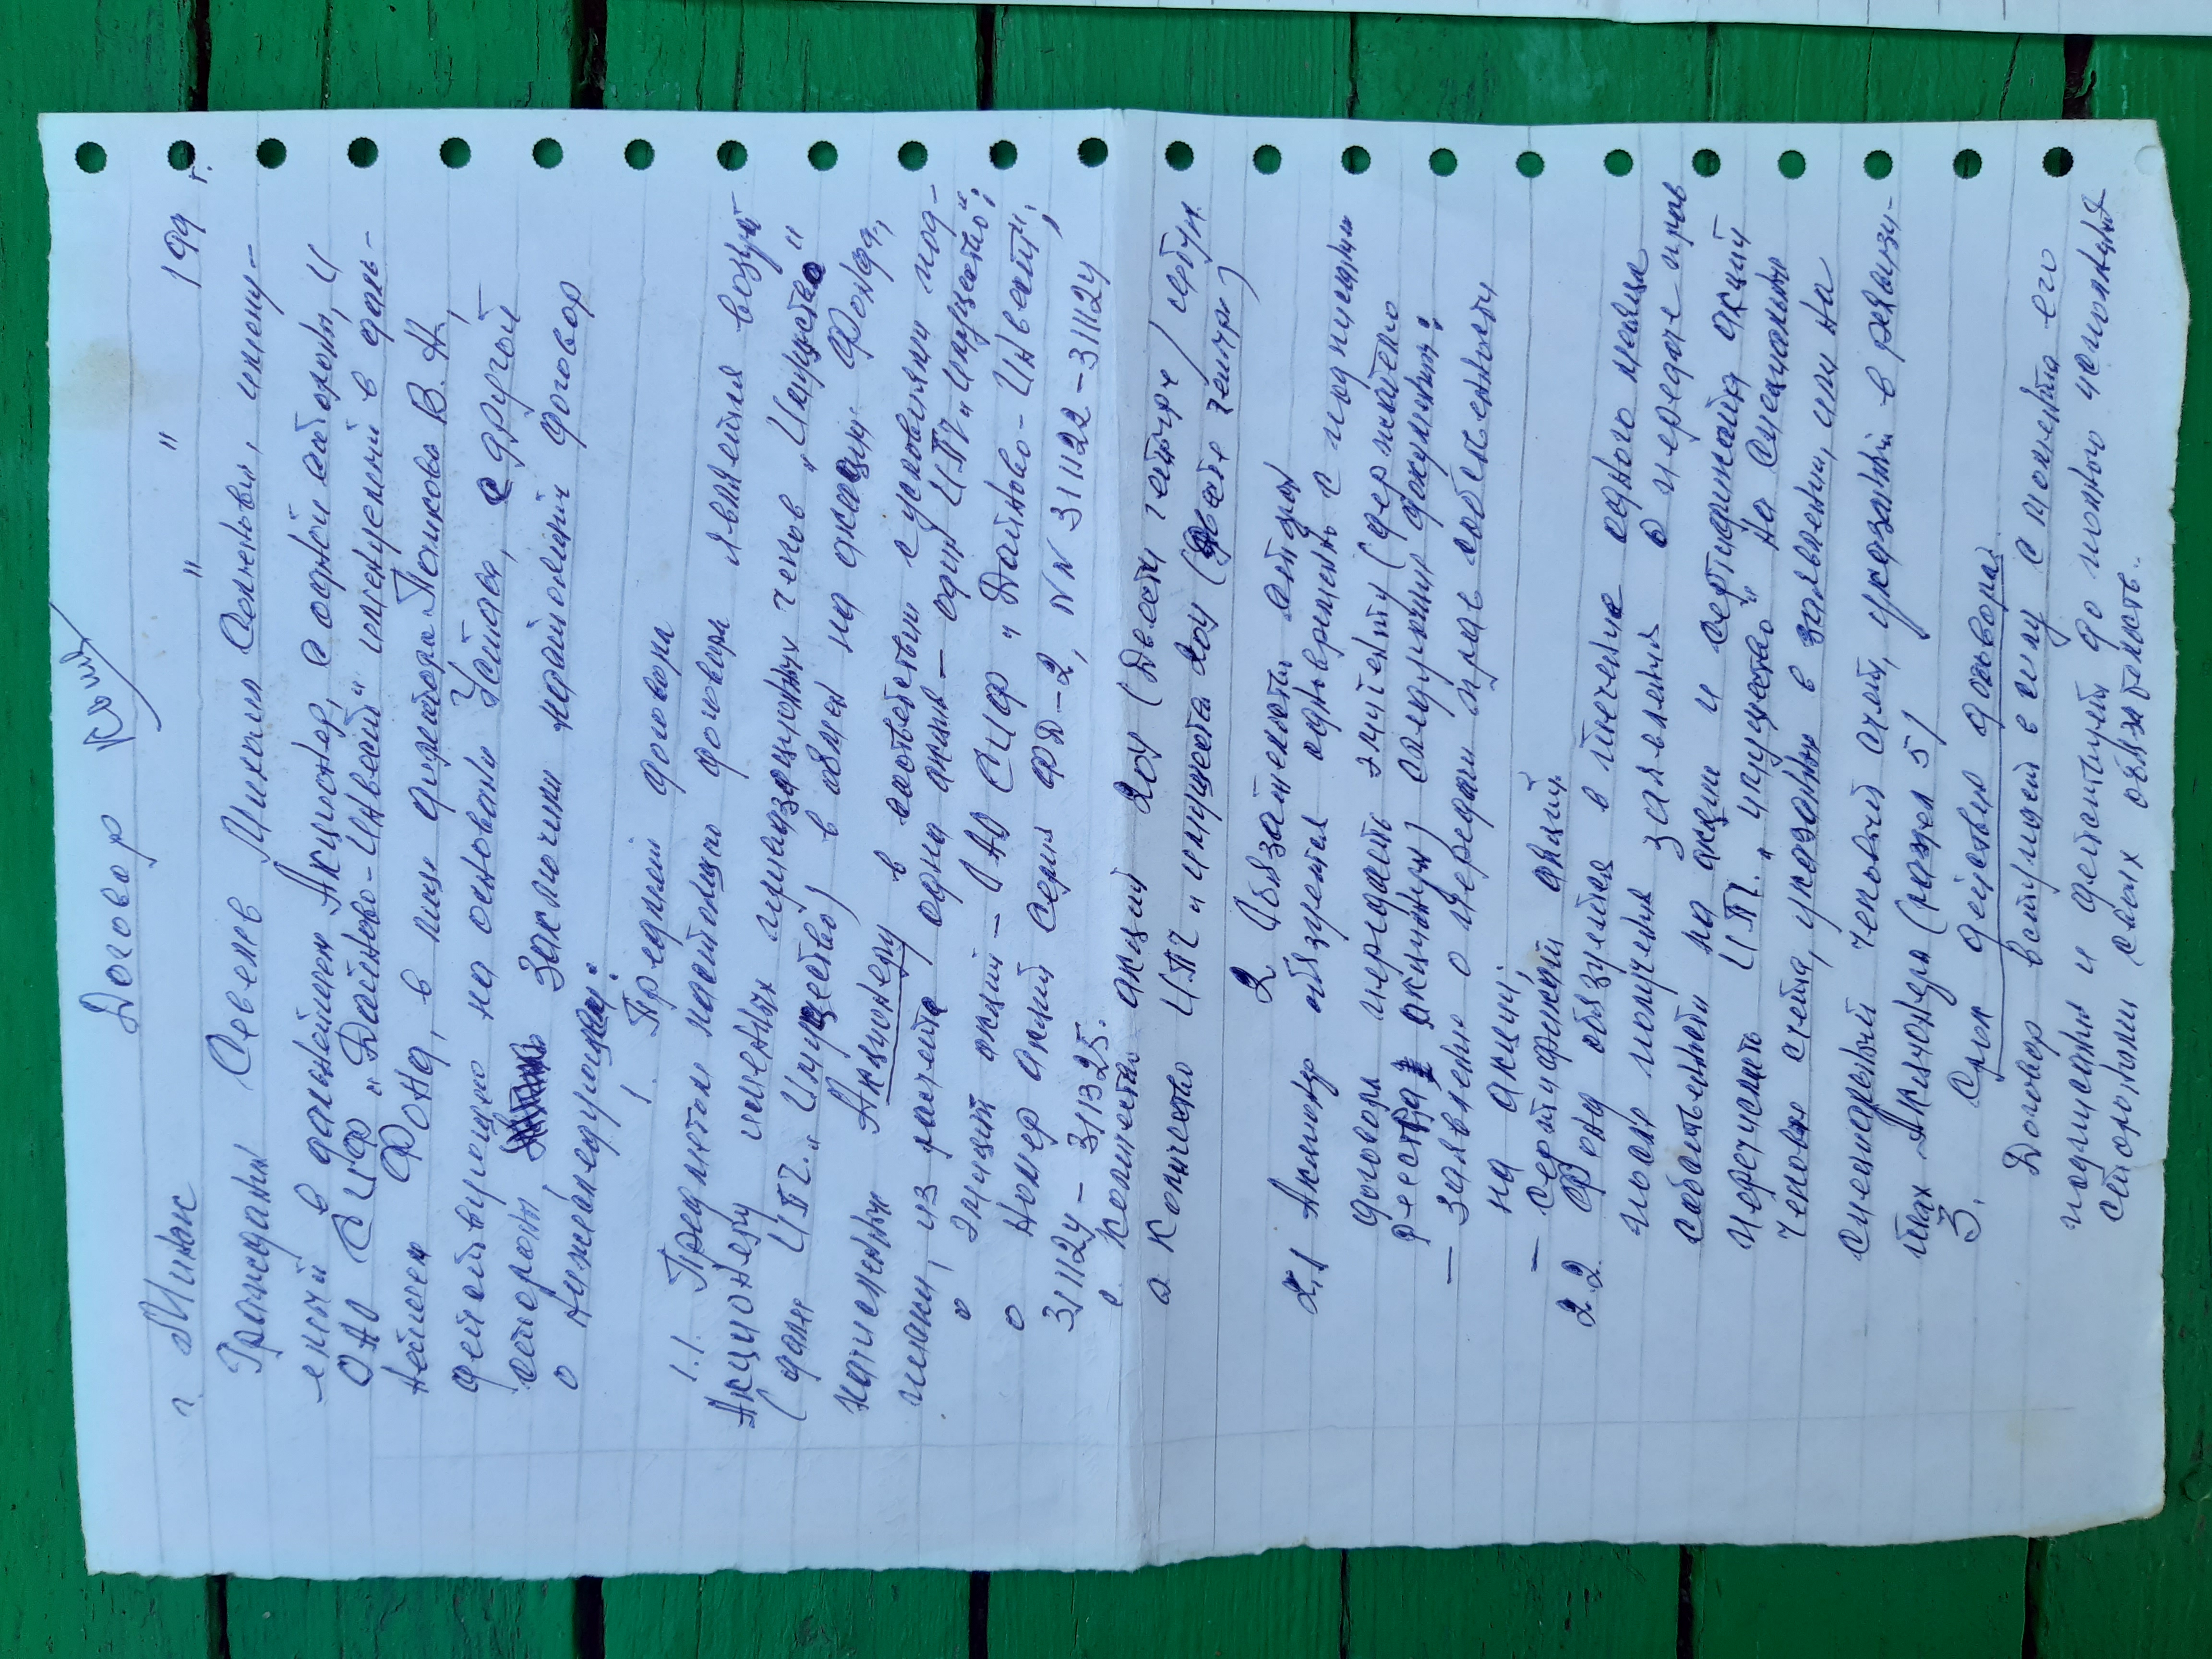 Договор
г. Минск " " 199 г.
Гражданин Савенев Михаил Семенович, имену-
емый в дальнейшем Акционер, с одной стороны, и
ОАО СИФ "Дайново-Инвест" именуемый в даль-
нейшем Фонд, в лице директора Попкова В. Н.,
действующего на основании Устава, с другой
стороны заключили настоящий договор
о нижеследующем:
1. Предмет договора
1.1. Предметом настоящего договора является возврат
Акционеру именных приватизационных чеков "Имущество"
(далее ИПЧ "Имущество) в обмен на акции Фонда,
Акционеру в соответствии с условиями под-
писки, из расчета одна акция – один ИПЧ "имущество";
о эмитент акций – ОАО СИФ "Дайново-Инвест";
о номер акций серия ФД-2, NN 311122 – 311124
311124 – 311325.
о Количество акций 204 (Двести четыре) штук.
о Количество ИПЧ "имущество 204 (Двести четыре)
2 Обязательства сторон
2.1 Акционер обязуется одновременно с подписанием
договора передать эмитенту (держателю
реестра акционеров) следующие документы:
– заявление о передаче прав собственности
на акции;
– сертификат акций
2.2 Фонд обязуется в течение одного месяца
после получения заявления о передаче прав
собственности на акции и сертификата акций
перечислить ИПЧ "имущество" на специальные
чековые счета, указанные в заявлении, или на
специальный чековый счет, указанный в реквизи-
тах Акционера (раздел 5)
3. Срок действия договора
Договор вступает в силу с момента его
подписания и действует до полного исполнения
сторонами своих обязательств.